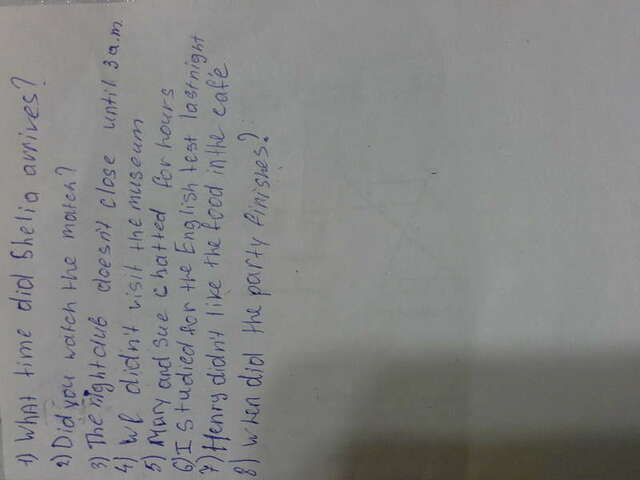 1) What time did Shelia arrives?
2) Did you watch the match?
3) The nightclub doesn't close until 3 a.m
4) We didn't visit the museum
5) Mary and Sue chatted for hours
6) I studied for the English test lastnight
7) Henry didn't like the food in the café
8) When did the party finishes?